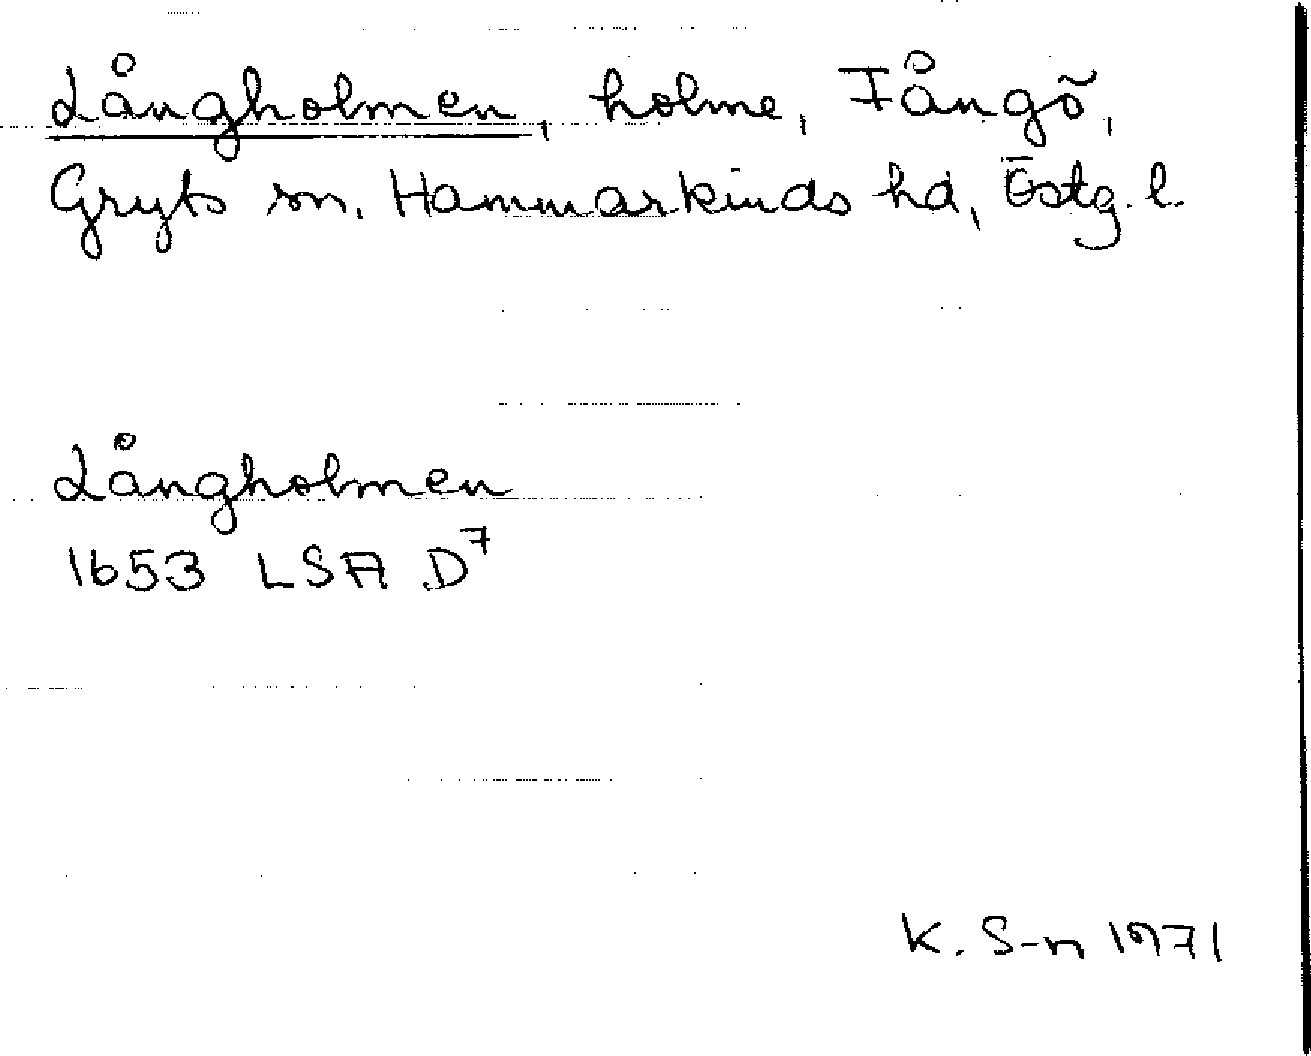 Långholmen, holme, Fångö,
Gryts sn, Hammarkinds hd, Östg. l.
Långholmen
1653 LSA D7
K. S-n 1971